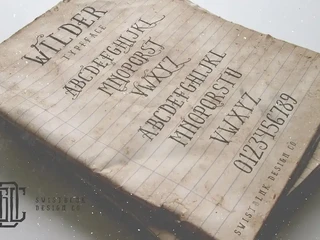 WILDER
TYPEFACE
ABCDEFGHIJKL
MNOPQRST
VWXYZ
ABCDEFGHIJKL
MNOPQRSTU
VWXYZ
0123456789
SWISTBLNK DESIGN CO.
SWISTBLNK
DESIGN CO.